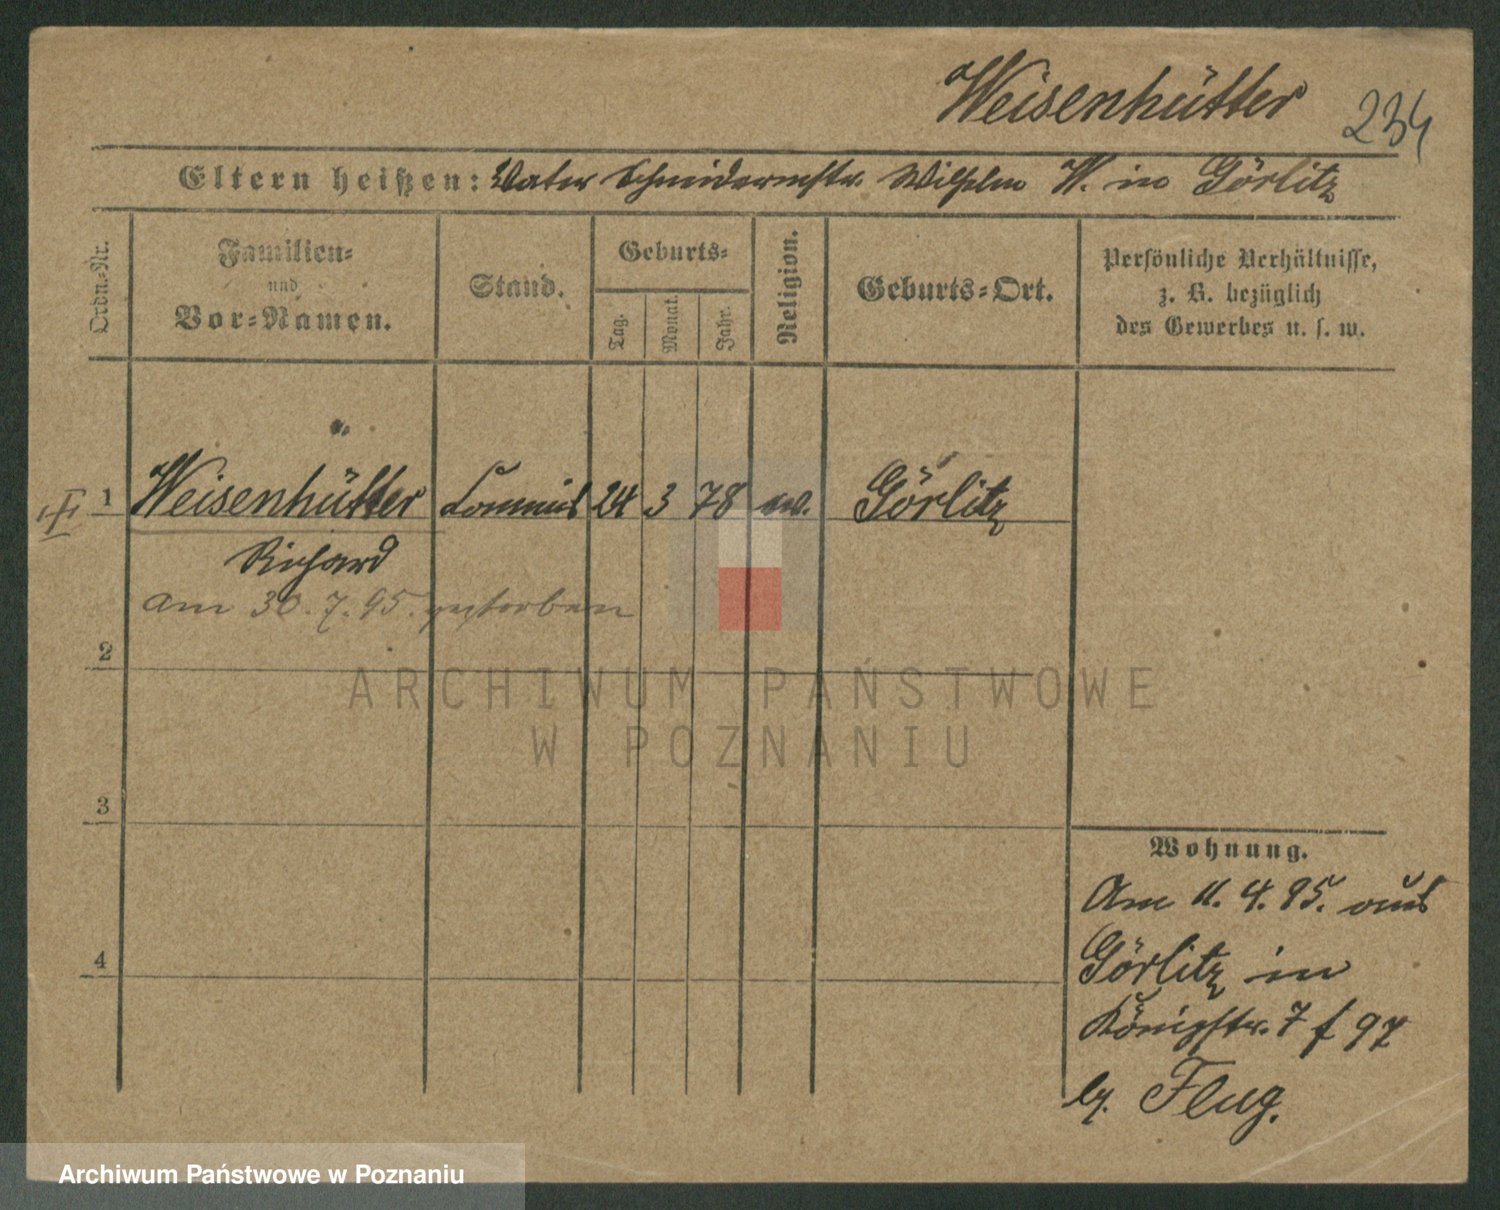 Weisenhütter 234
Eltern heißen: Vater Schneidermstr. Wilhelm W. in Görlitz
Ordn.-Nr.
Familien-
und
Vor-Namen.
Stand.
Geburts-
Tag.
Monat.
Jahr.
Religion.
Geburts-Ort.
Persönliche Verhältnisse,
z. B. bezüglich
des Gewerbes u. s. w.
1 Weisenhütter Commis 24 3 78 ev. Görlitz
Richard
am 30.7.95. gestorben
2
3
4
Wohnung.
Am 11.4.95. aus
Görlitz in
Königstr. 7 f 97
by. Flug.
ARCHIWUM PAŃSTWOWE
W POZNANIU
Archiwum Państwowe w Poznaniu